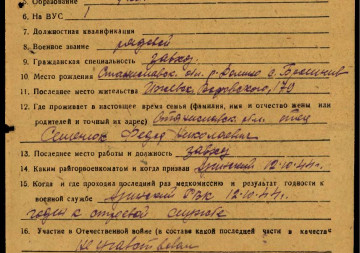 6. На ВУС
7. Должностная квалификация
8. Военное звание рядовой
9. Гражданская специальность завхоз
10. Место рождения Станиславск. обл. р-Долино с.
11. Последнее место жительства Ижевск, 170
12. Где проживает в настоящее время семья (фамилия, имя и отчество жены или
родителей и точный их адрес) Станиславск обл. отец
Семенюк Федор Николаевич
13. Последнее место работы и должность завхоз
14. Каким райгорвоенкоматом и когда призван 12.10.44 г.
15. Когда и где проходил последний раз медкомиссию и результат годности к
военной службе РВК 12.10.44 г.
годен к строевой службе
16. Участие в Отечественной войне (в составе какой последней части и в качестве
не участвовал